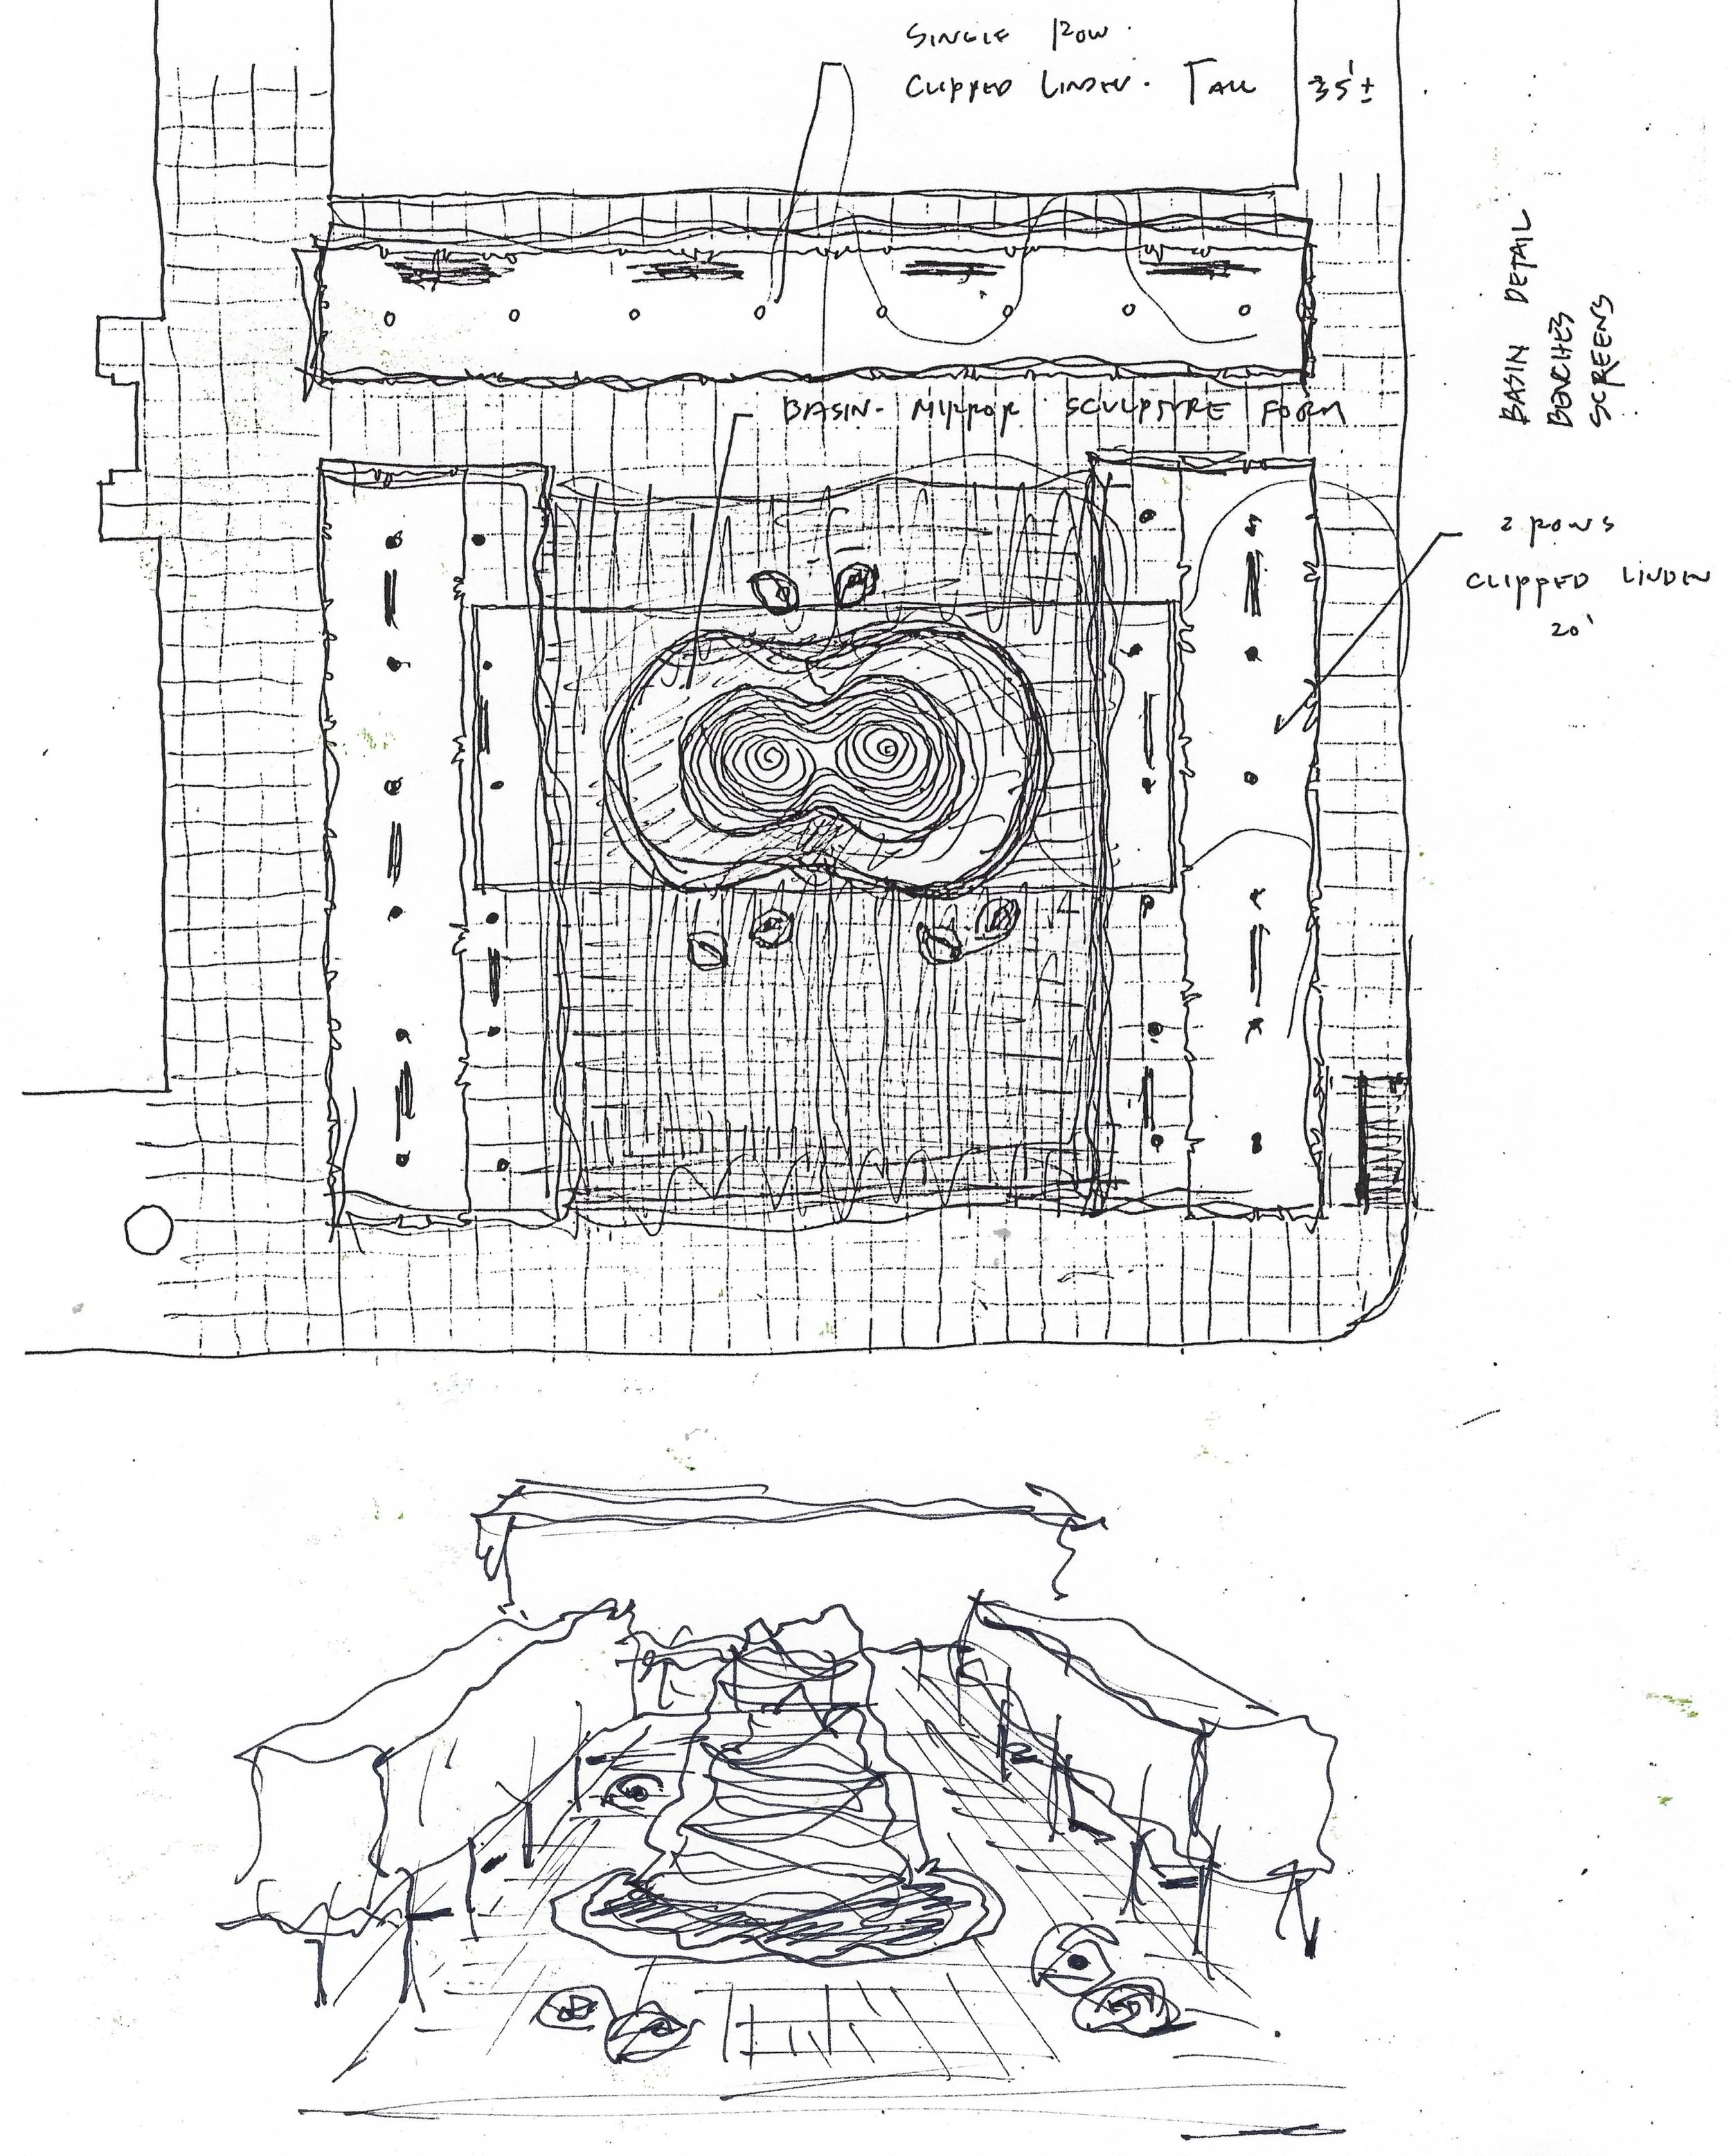 SINGLE ROW.
CLIPPED LINDEN. TALL 35'±
BASIN- MIRROR SCULPTURE FORM
BASIN DETAIL
BENCHES
SCREENS
2 ROWS
CLIPPED LINDEN
20'